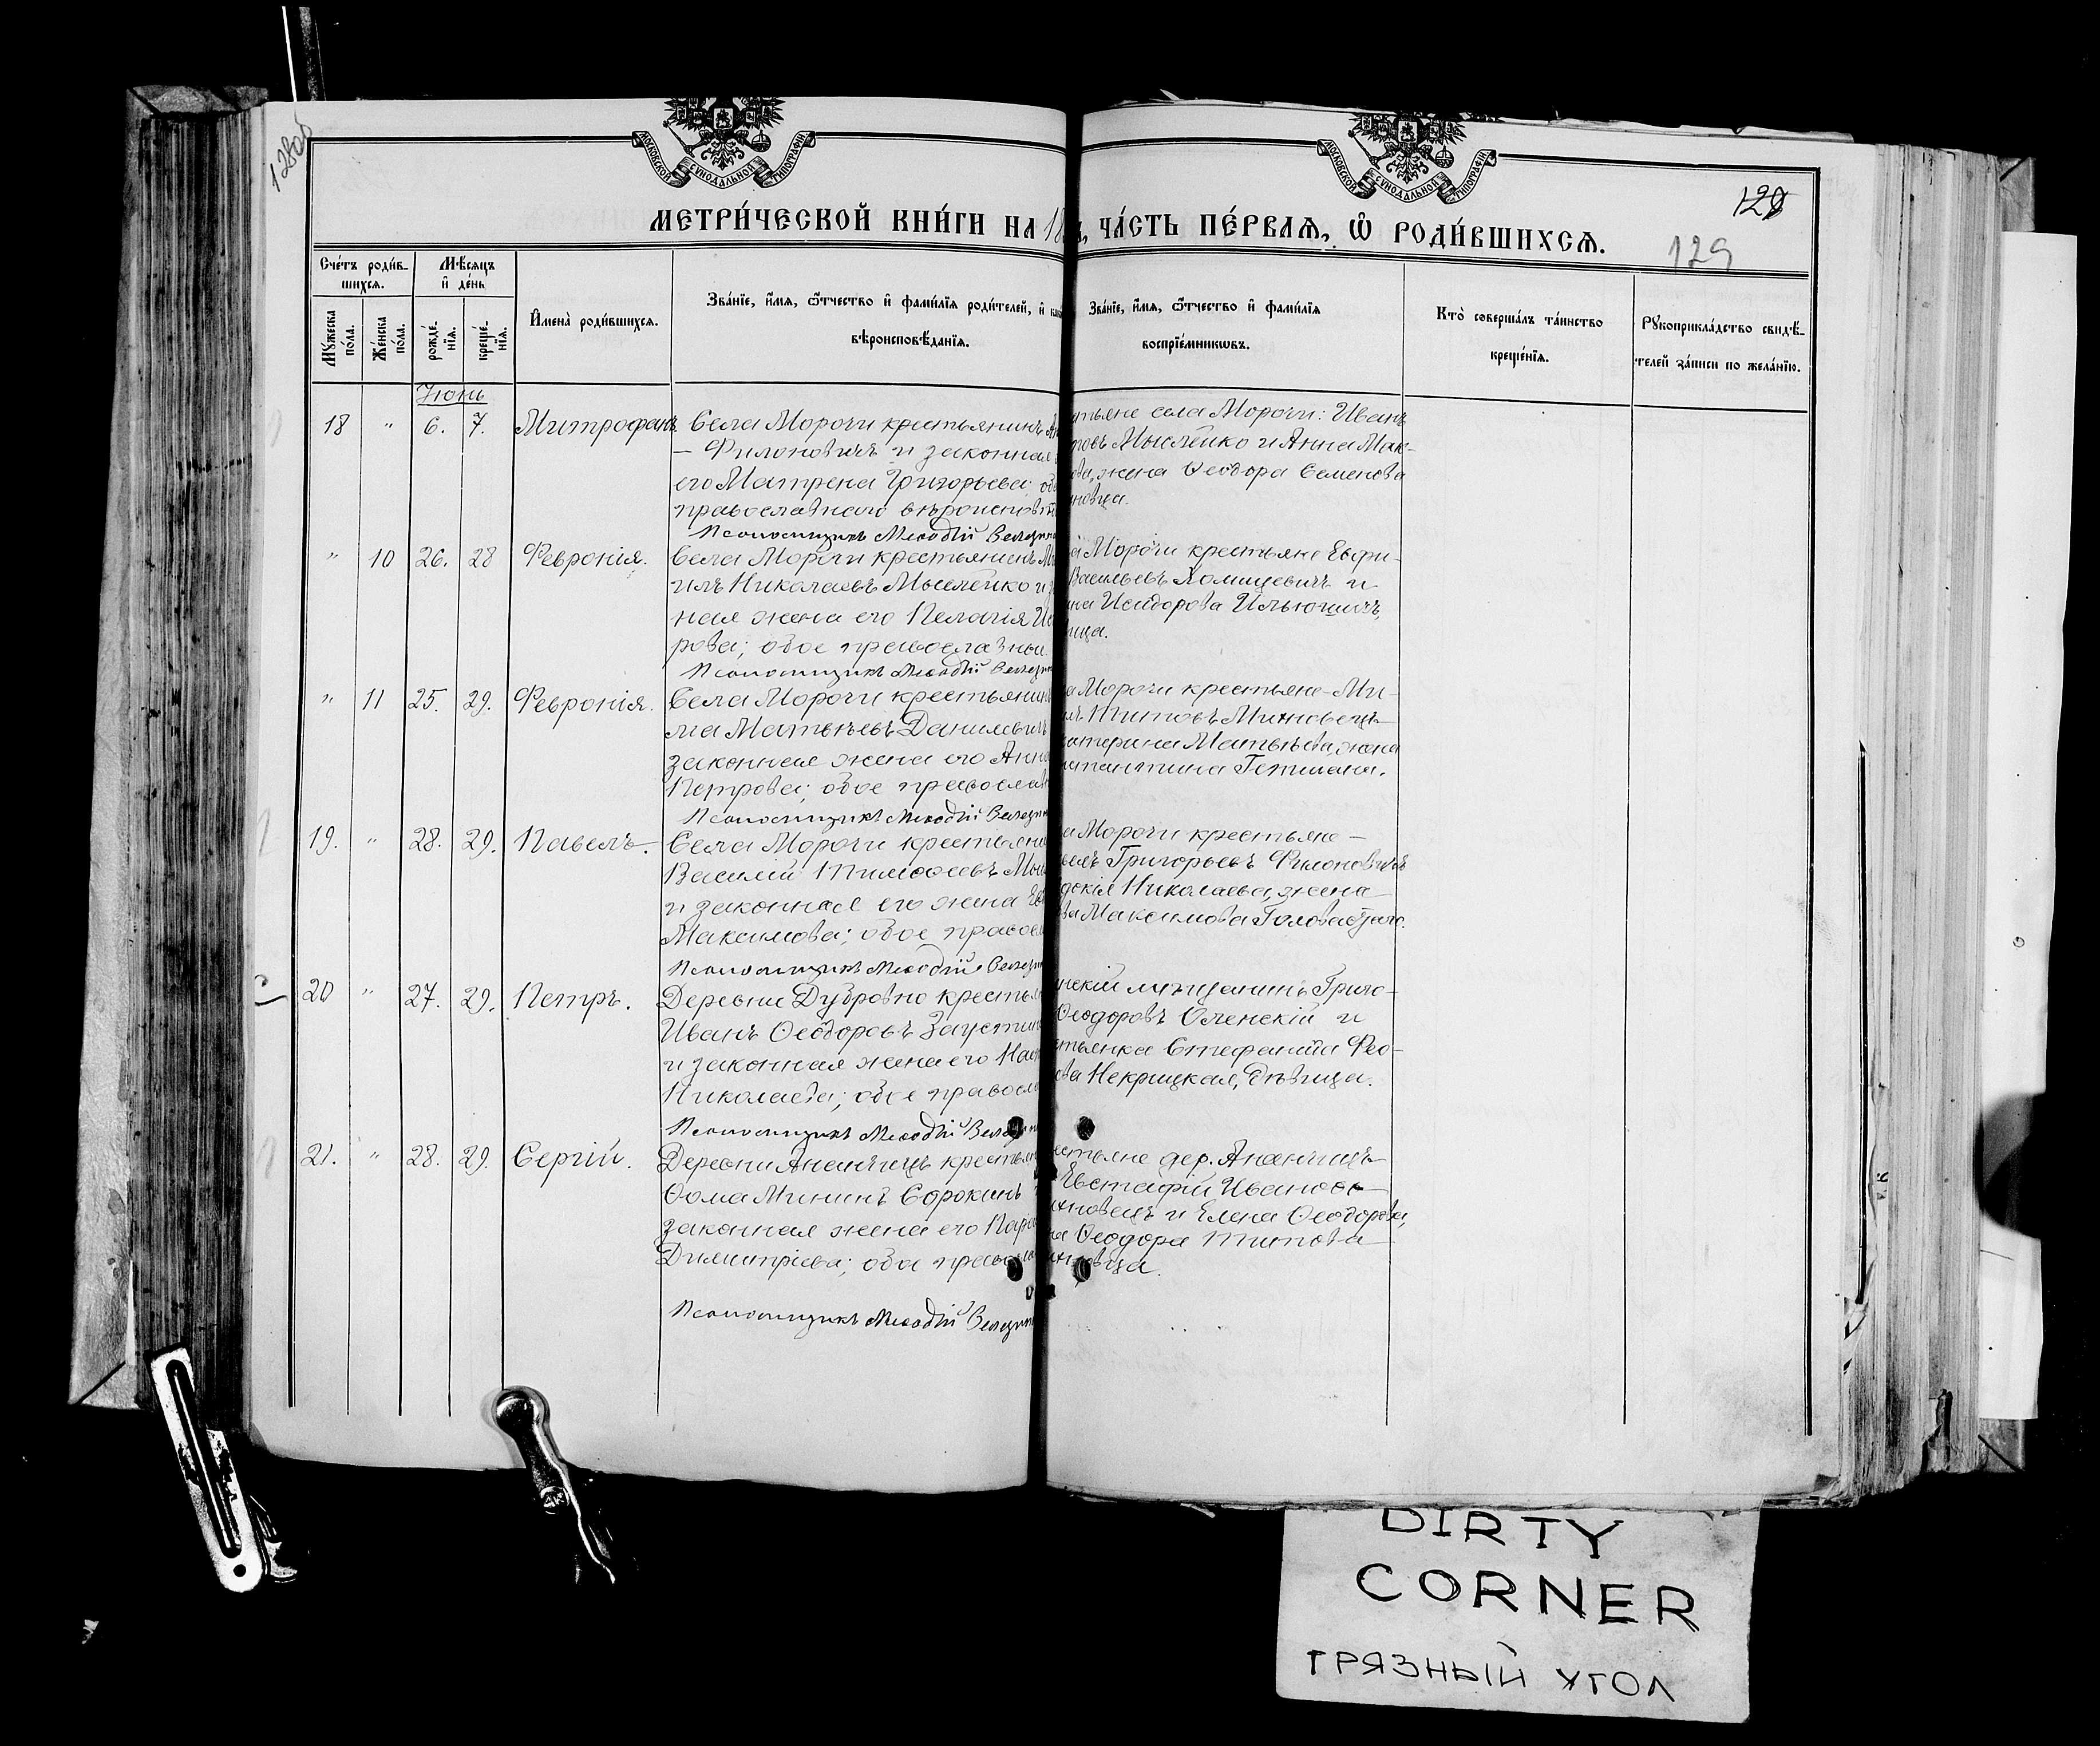 128об
МОСКОВСКОЙ СѴНОДАЛЬНОЙ ТИПОГРАФІИ
МОСКОВСКОЙ СѴНОДАЛЬНОЙ ТИПОГРАФІИ
129
129
МЕТРИ́ЧЕСКОЙ КНИ́ГИ НА 18
ЧА́СТЬ ПЕ́РВАЯ, Ѡ РОДИ́ВШИХСЯ.
Сче́тъ роди́вшихся.
Мꙋ́жеска по́ла.
Же́нска по́ла.
Мѣ́сяцъ и҆ де́нь
рожде́нїя.
креще́нїя.
И҆мена̀ роди́вшихся.
Зва́нїе, и҆́мя, ѻ҆́тчество и҆ фами́лїя роди́телей, и҆
вѣроисповѣ́данїя.
Зва́нїе, и҆́мя, ѻ҆́тчество и҆ фами́лїя
воспрїе́мниковъ.
Кто̀ соверша́лъ та́инство
креще́нїя.
Рꙋкоприкла́дство свидѣ́-
телей за́писи по жела́нїю.
Іюнь
18 " 6. 7. Митрофанъ.
Села Морочи крестьянинъ
— Филоновичъ и законная
его Матрена Григорьева
православнаго вѣроиспов
Псаломщикъ Меѳодій
стьяне села Морочи: Иванъ
товъ Мыслейко и Анна Мак-
ова, жена Ѳеодора Семенова
новца.
" 10 26. 28 Февронія.
Села Морочи крестьянинъ
илъ Николаевъ Мыслейко и
ная жена его Пелагія
рова; обое православны
Псаломщикъ Меѳодій
а Морочи крестьяне Евфи-
Васильевъ Хомицевичъ и
Исидорова Ильюшичъ,
вица.
" 11 25. 29. Февронія.
Села Морочи крестьянин
ма Матвѣевъ Данилевичъ
законная жена его Анна
Петрова; обое православ
Псаломщикъ Меѳодій
а Морочи крестьяне Ми-
илъ Титовъ Михновецъ
катерина Матвѣева, жена
стантина Гетмана.
19. " 28. 29. Павелъ.
Села Морочи крестьяни
Василій Тимоѳеевъ Мыс
и законная его жена
Максимова; обое правосл
Псаломщикъ Меѳодій
а Морочи крестьяне
Григорьевъ Филоновичъ
докія Николаева, жена
ва Максимова
20 " 27. 29. Петръ.
Деревни Дубровно крестья
Иванъ Ѳеодоровъ
и законная жена его Нас
Николаева; обое правосла
Псаломщикъ Меѳодій
нскій мѣщанинъ Григо-
Ѳеодоровъ Оленскій и
стьянка Стефанида Фео-
ова Некрицкая, дѣвица.
21. " 28. 29. Сергій.
Деревни Ананчицъ крестья
Ѳома Мининъ Сорокинъ
законная жена его Пара
Димитріева; обое правосла
Псаломщикъ Меѳодій
естьяне дер. Ананчицъ
Евстафій Ивановъ
ихновецъ и Елена Ѳеодорова,
на Ѳеодора Титова
ихновца.
DIRTY
CORNER
ГРЯЗНЫЙ УГОЛ